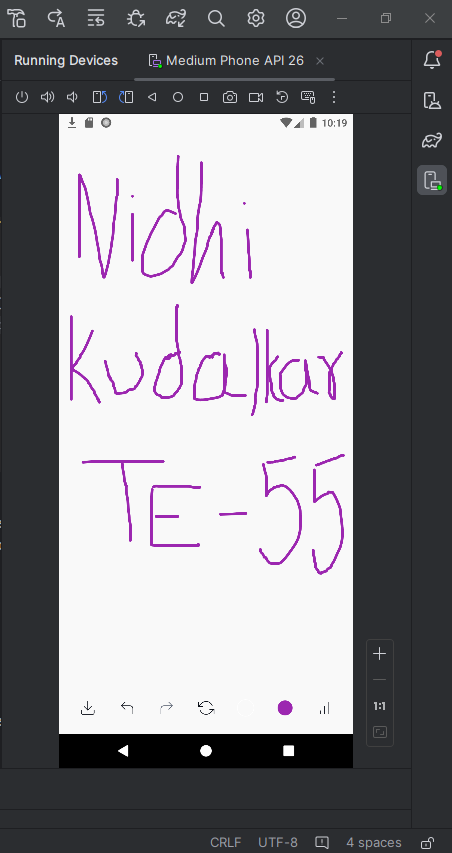 Running Devices Medium Phone API 26
10:19
Nidhi
Kudalkar
TE-55
1:1
CRLF UTF-8 4 spaces